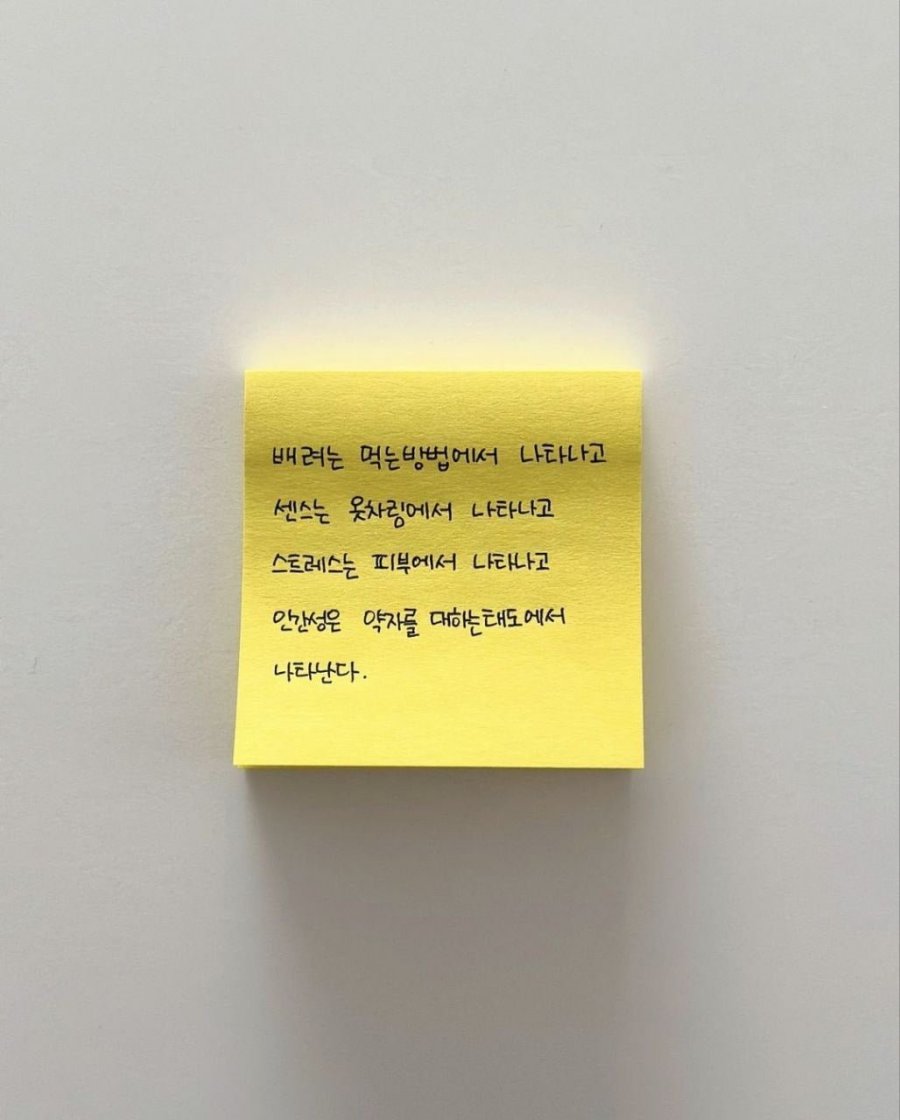 배려는 먹는방법에서 나타나고
센스는 옷차림에서 나타나고
스트레스는 피부에서 나타나고
인간성은 약자를 대하는태도에서
나타난다.